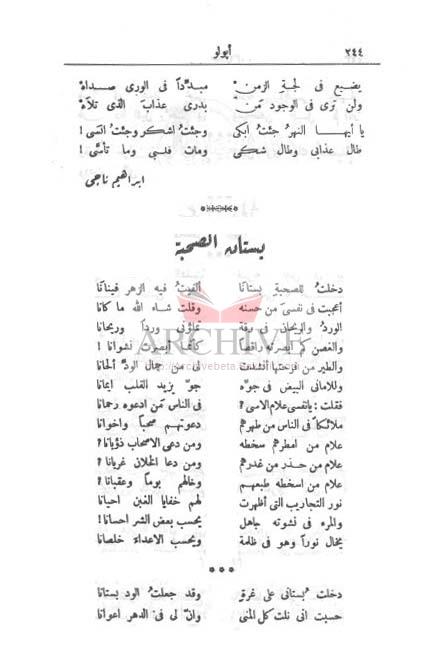 ٢٤٤ أبولو
يضيع فى لجة الزمن مبدَّداً فى الورى صداهْ
ولن ترى فى الوجود مَنْ يدرى عذابَ الذى تلاهْ
يا أيها النهرُ جئتُ أبكى وجئتُ أشكو وجئتُ أنسى !
طال عذابى وطال شكى ومات قلبى وما تأسَّى !
ابراهيم ناجى
بستان الصحبة
دخلتُ للصحبة بستانا ألفيتُ فيه الزهر فينانا
أعجبت فى نفسىَ من حسنه وقلت شاء الله ما كانا
الوردُ والريحان فى رقة ورداً وريحانا
والغصن كم أبصرته راقصاً كأنما أبصرت نشوانا !
والطير من فرحتها أنشدت فى جمال الودّ ألحانا
وللأمانى البيض فى جوّه جوّ يزيد القلب إيمانا
فقلت : يا نفسى علام الأسى ؟ فى الناس مَن أدعوه رحمانا
ملائكاً فى الناس من طهرهم دعوتهم صحباً وإخوانا
علام من أمطرهم سخطه ومن دعى الأصحاب ذؤبانا ؟
علام من حذر من غدرهم ومن دعا الخلان غربانا ؟
علام من أسخطه طبعهم وخالهم بوماً وعقبانا ؟
نور التجاريب التى أظهرت لهم خفايا الغبن أحيانا
والمرء فى نشوته جاهل يحسب بعض الشر إحسانا !
يخال نوراً وهو فى ظلمة ويحسب الأعداء خلصانا
***
دخلت بستانى على غرةٍ وقد جعلتُ الود بستانا
حسبت أنى نلت كل المنى وأنّ لى فى الدهر أعوانا
ARCHIVE